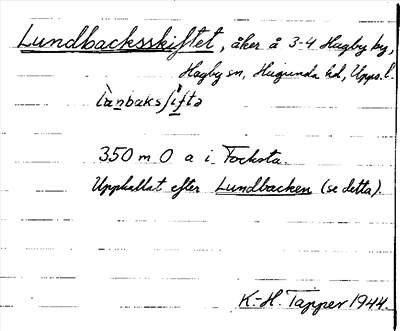 Lundbacksskiftet, åker å 3-4 Hagby by,
Hagby sn, Hagunda hd, Upps. l.
350 m O a i Focksta.
Uppkallat efter Lundbacken (se detta).
K.-H. Tapper 1944.